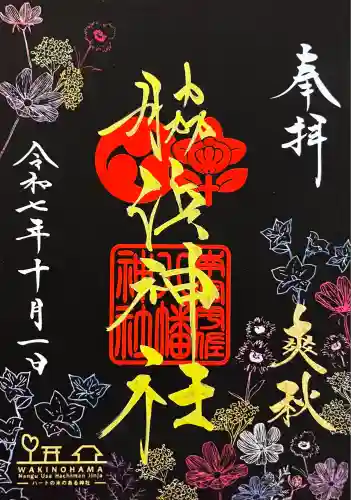 奉拝
脇浜神社
爽秋
令和七年十月一日
WAKINOHAMA
Nangu Usa Hachiman Jinja
ハートの木のある神社